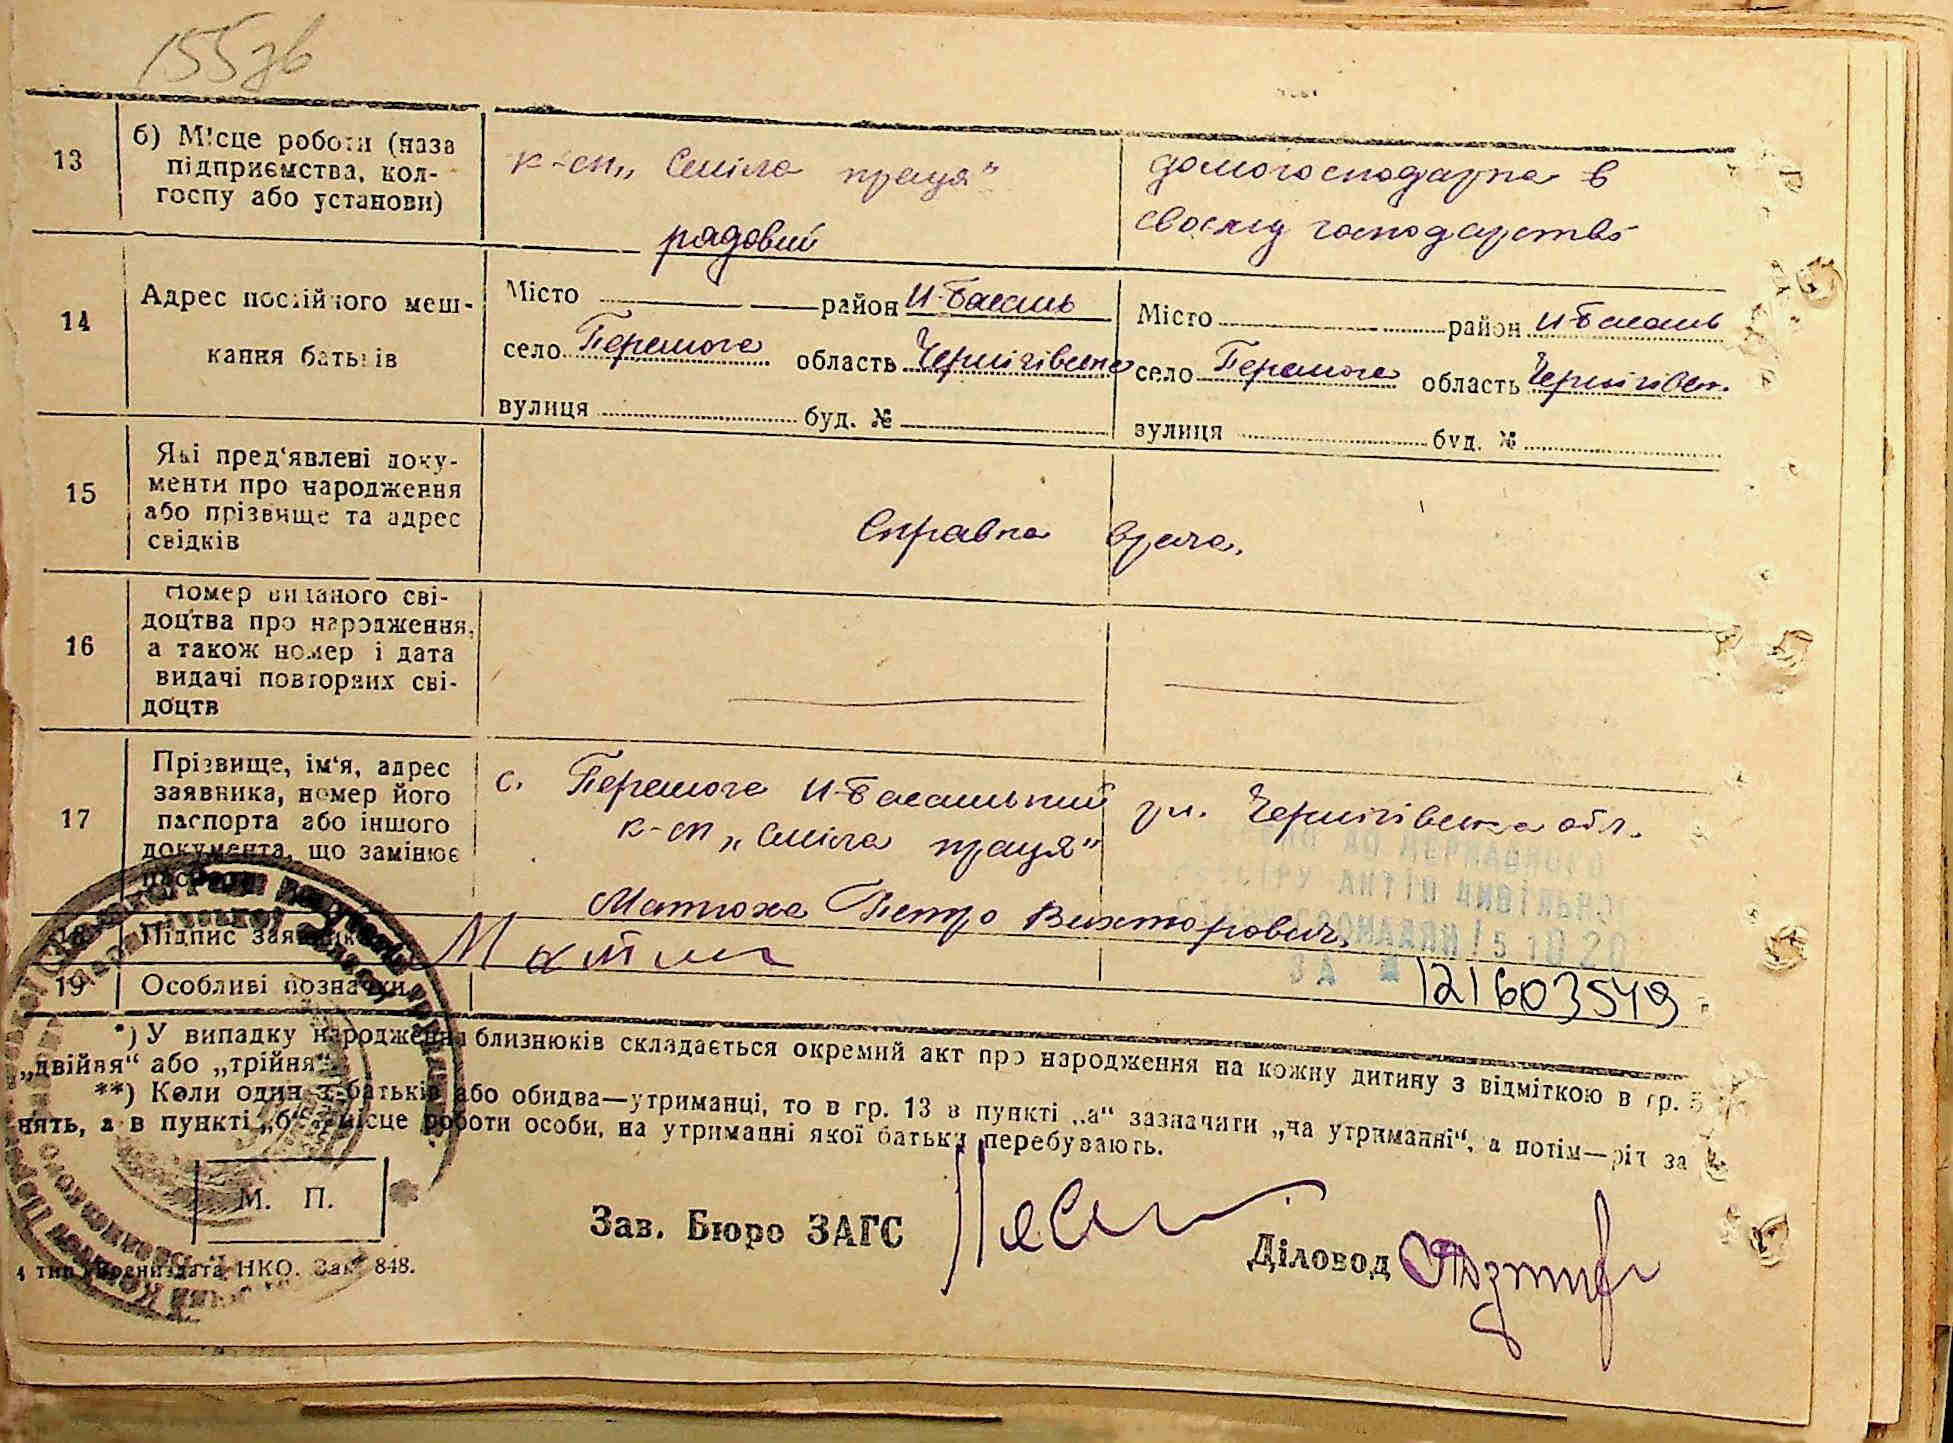 155зв
13
б) Місце роботи (наза
підприємства, кол-
госпу або установи)
к-сп „Сміла праця"
рядовий
домогосподарка в
своєму господарстві
14
Адрес постійного меш-
кання батьків
Місто район Н-Басань
село Перемога область Чернігівська
вулиця буд. №
Місто район Н-Басань
село Перемога область Чернігівськ.
вулиця буд. №
15
Які пред'явлені доку-
менти про народження
або прізвище та адрес
свідків
Справка врача.
16
Номер виданого сві-
доцтва про народження,
а також номер і дата
видачі повторних сві-
доцтв
17
Прізвище, ім'я, адрес
заявника, номер його
паспорта або іншого
документа, що замінює
паспорт
с. Перемога Н-Басанський р-н. Чернігівська обл.
к-сп „Сміла праця"
Матюха Петро Вікторович.
18
Підпис заявника
19
Особливі позначки
ДО ДЕРЖАВНОГО
РЕЄСТРУ АКТІВ ЦИВІЛЬНОГО
СТАНУ ГРОМАДЯН
ЗА № 121603549
*) У випадку народження близнюків складається окремий акт про народження на кожну дитину з відміткою в гр. 5
„двійня" або „трійня".
**) Коли один з батьків або обидва—утриманці, то в гр. 13 в пункті „а" зазначити „на утриманні", а потім—рід за
нять, а в пункті „б" місце роботи особи, на утриманні якої батьки перебувають.
М. П.
Зав. Бюро ЗАГС
Діловод
НКО. Зак. 848.